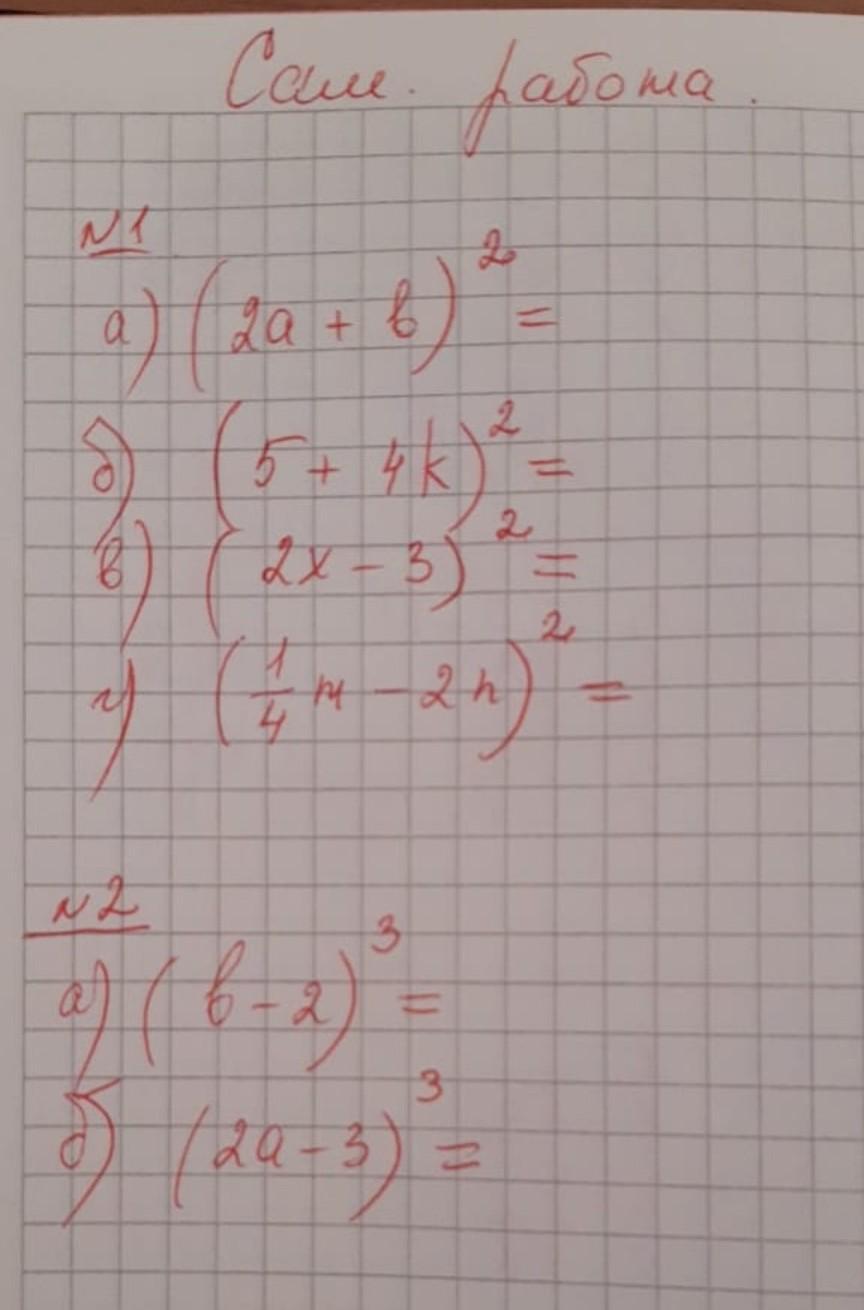 Сам. работа.
N1
а) (2a + b)² =
б) (5 + 4k)² =
в) (2x - 3)² =
г) (1/4 m - 2n)² =
N2
а) (b - 2)³ =
б) (2a - 3)³ =